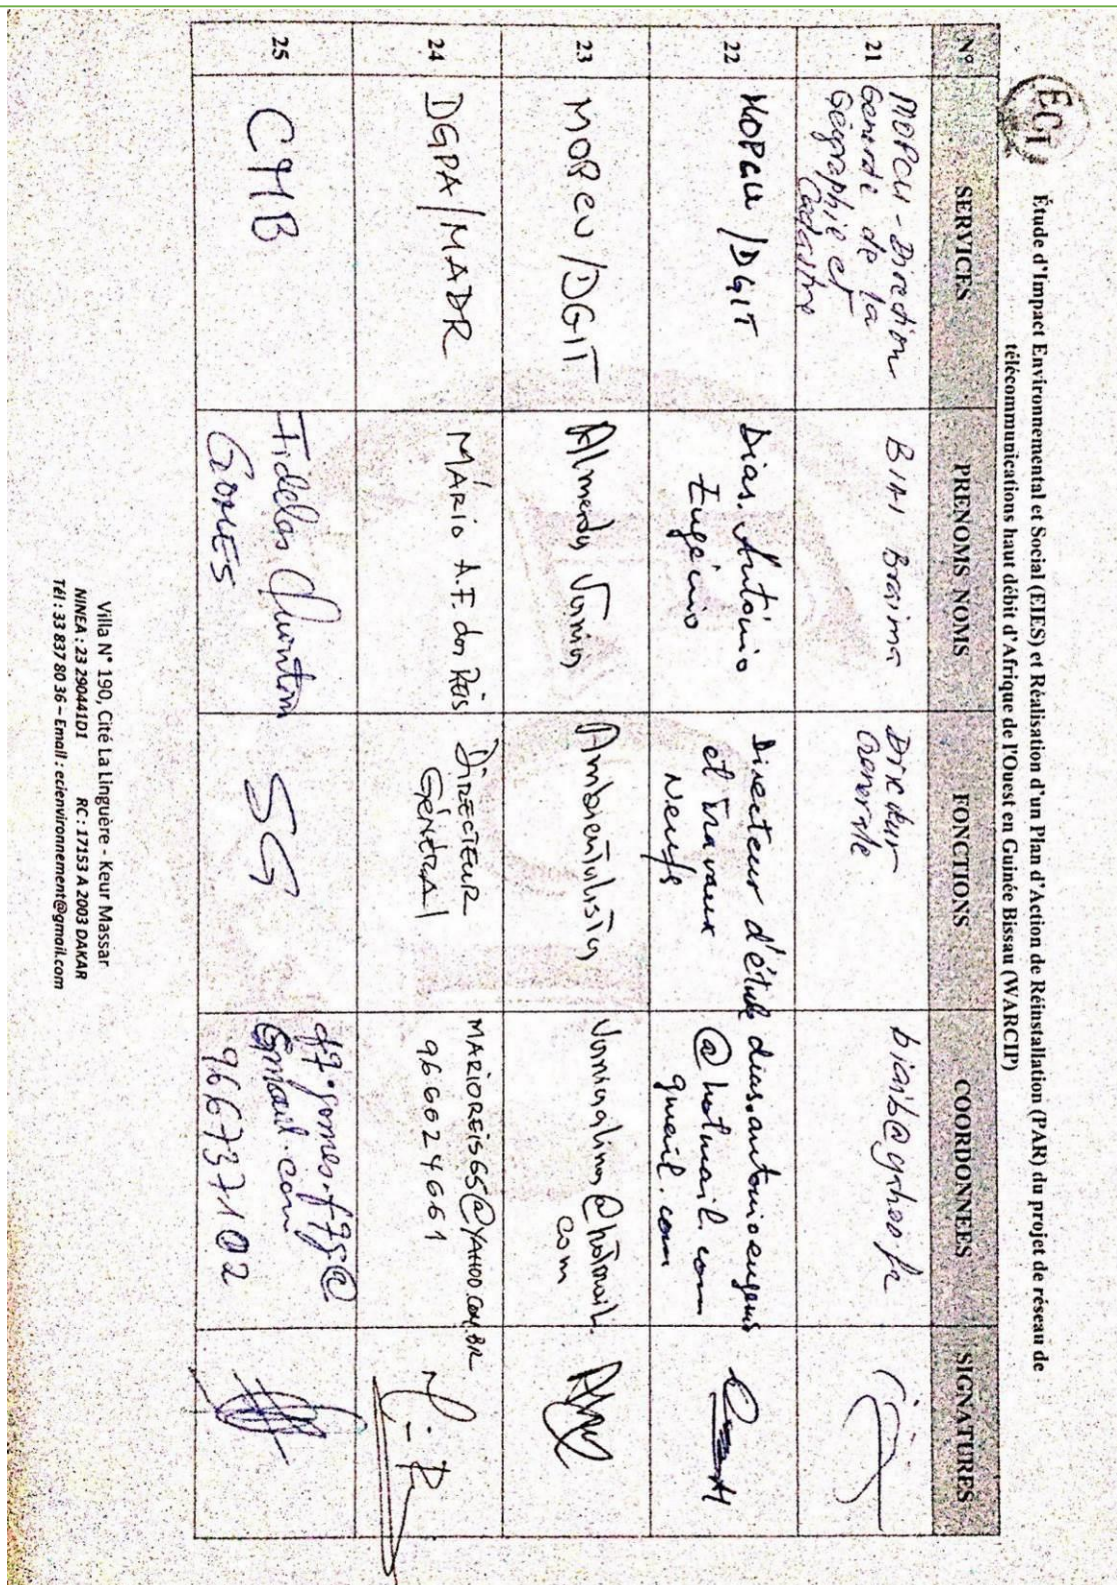 ECI
Étude d'Impact Environnemental et Social (EIES) et Réalisation d'un Plan d'Action de Réinstallation (PAR) du projet de réseau de
télécommunications haut débit d'Afrique de l'Ouest en Guinée Bissau (WARCIP)
N° SERVICES PRENOMS NOMS FONCTIONS COORDONNEES SIGNATURES
21
MOPCU - Direction
Generale de la
Géographie et
Cadastre
BIAI Braima
Directeur
Generale
biaib@yahoo.fr
22
MOPCU /DGIT
Dias. António
Eugénio
Directeur d'étude
et Travaux
Neufs
dias.antonioeugenio
@hotmail.com
gmail.com
23
MOPCU /DGIT
Almeida Vania
Ambientalista
@hotmail.
com
24
DGPA/MADR
MÁRIO A.F. dos Reis
DIRECTEUR
GÉNÉRAL
MARIOREIS65@YAHOO.COM.BR
966624661
25
CMB
Fidelos Quintom
GOMES
SG
gmail.com
966737102
Villa N° 190, Cité La Linguère - Keur Massar
NINEA : 23 290441D1 RC : 17153 A 2003 DAKAR
Tél : 33 837 80 36 – Email : ecienvironnement@gmail.com